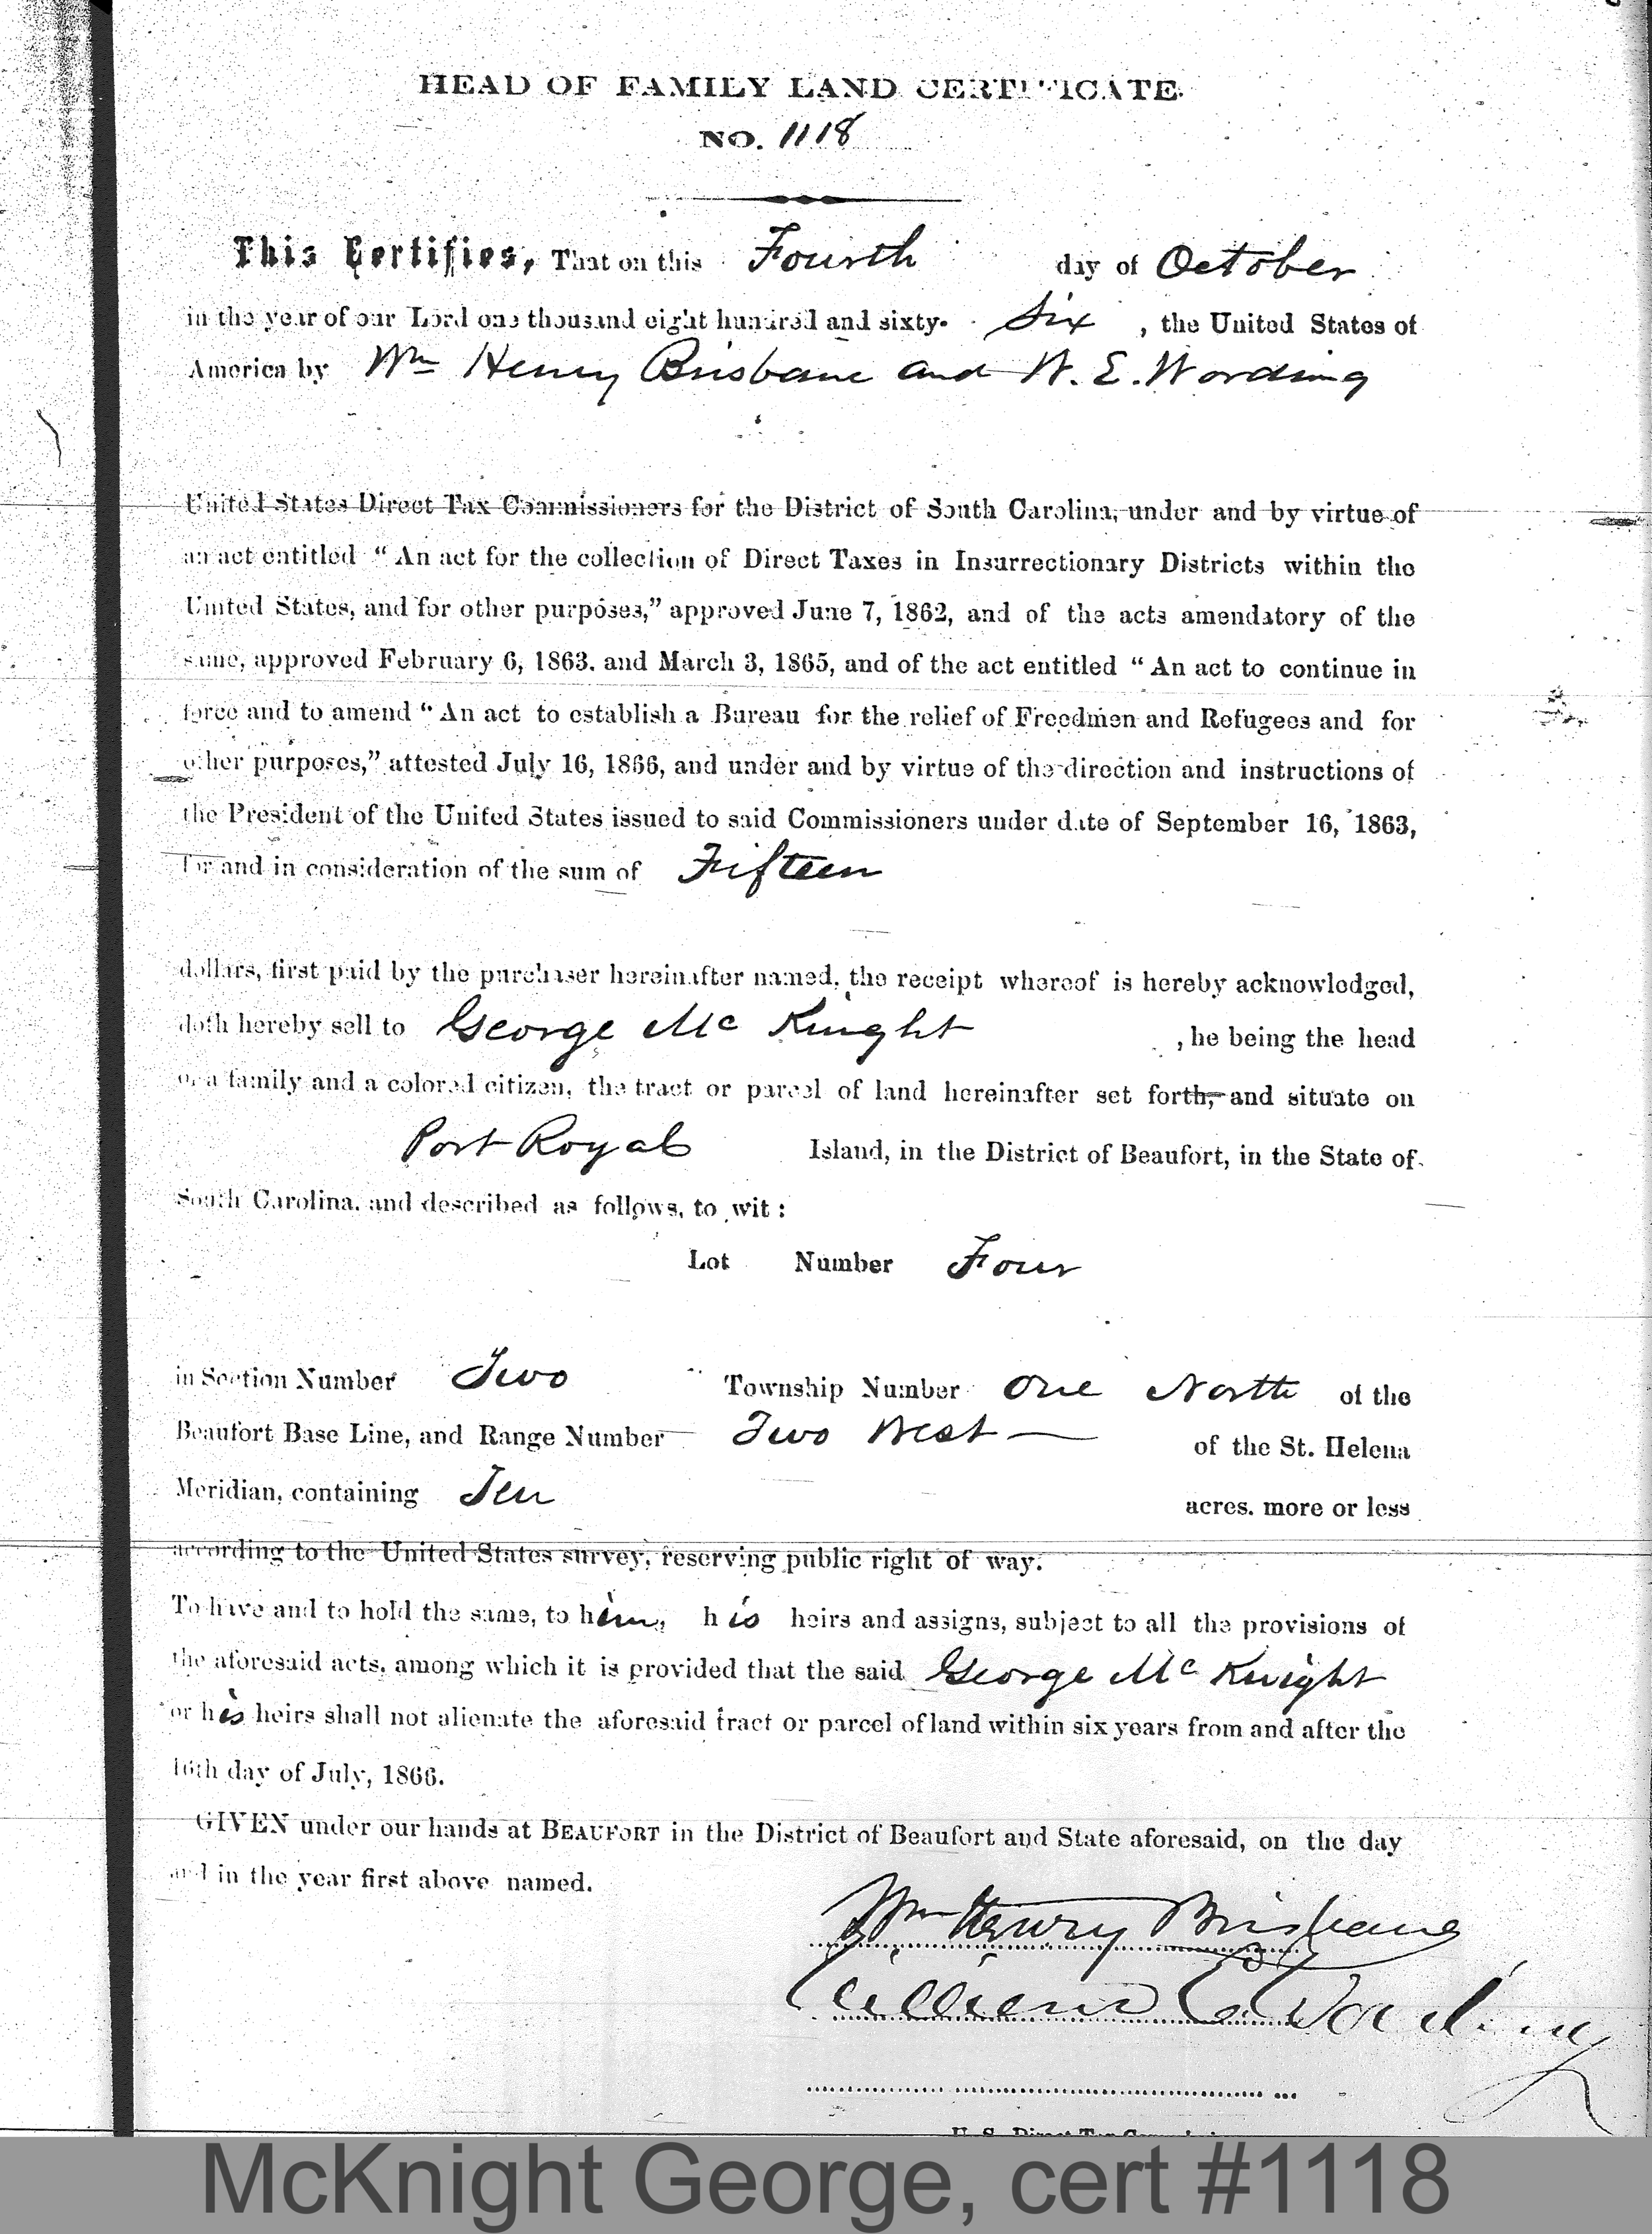 HEAD OF FAMILY LAND CERTIFICATE.
NO. 1118
This Certifies, That on this Fourth day of October
in the year of our Lord one thousand eight hundred and sixty- Six , the United States of
America by Wm Henry Brisbane and W. E. Wording
United States Direct Tax Commissioners for the District of South Carolina, under and by virtue of
an act entitled “An act for the collection of Direct Taxes in Insurrectionary Districts within the
United States, and for other purposes,” approved June 7, 1862, and of the acts amendatory of the
same, approved February 6, 1863. and March 3, 1865, and of the act entitled “An act to continue in
force and to amend “An act to establish a Bureau for the relief of Freedmen and Refugees and for
other purposes,” attested July 16, 1866, and under and by virtue of the direction and instructions of
the President of the United States issued to said Commissioners under date of September 16, 1863,
for and in consideration of the sum of Fifteen
dollars, first paid by the purchaser hereinafter named, the receipt whereof is hereby acknowledged,
doth hereby sell to George Mc Knight , he being the head
of a family and a colored citizen, the tract or parcel of land hereinafter set forth, and situate on
Port Royal Island, in the District of Beaufort, in the State of
South Carolina, and described as follows, to wit :
Lot Number Four
in Section Number Two Township Number One North of the
Beaufort Base Line, and Range Number Two West — of the St. Helena
Meridian, containing Ten acres. more or less
according to the United States survey, reserving public right of way.
To have and to hold the same, to him, his heirs and assigns, subject to all the provisions of
the aforesaid acts, among which it is provided that the said George Mc Knight
or his heirs shall not alienate the aforesaid tract or parcel of land within six years from and after the
16th day of July, 1866.
GIVEN under our hands at BEAUFORT in the District of Beaufort and State aforesaid, on the day
and in the year first above named.
Wm Henry Brisbane
William E. Wording
U. S. Direct Tax
McKnight George, cert #1118